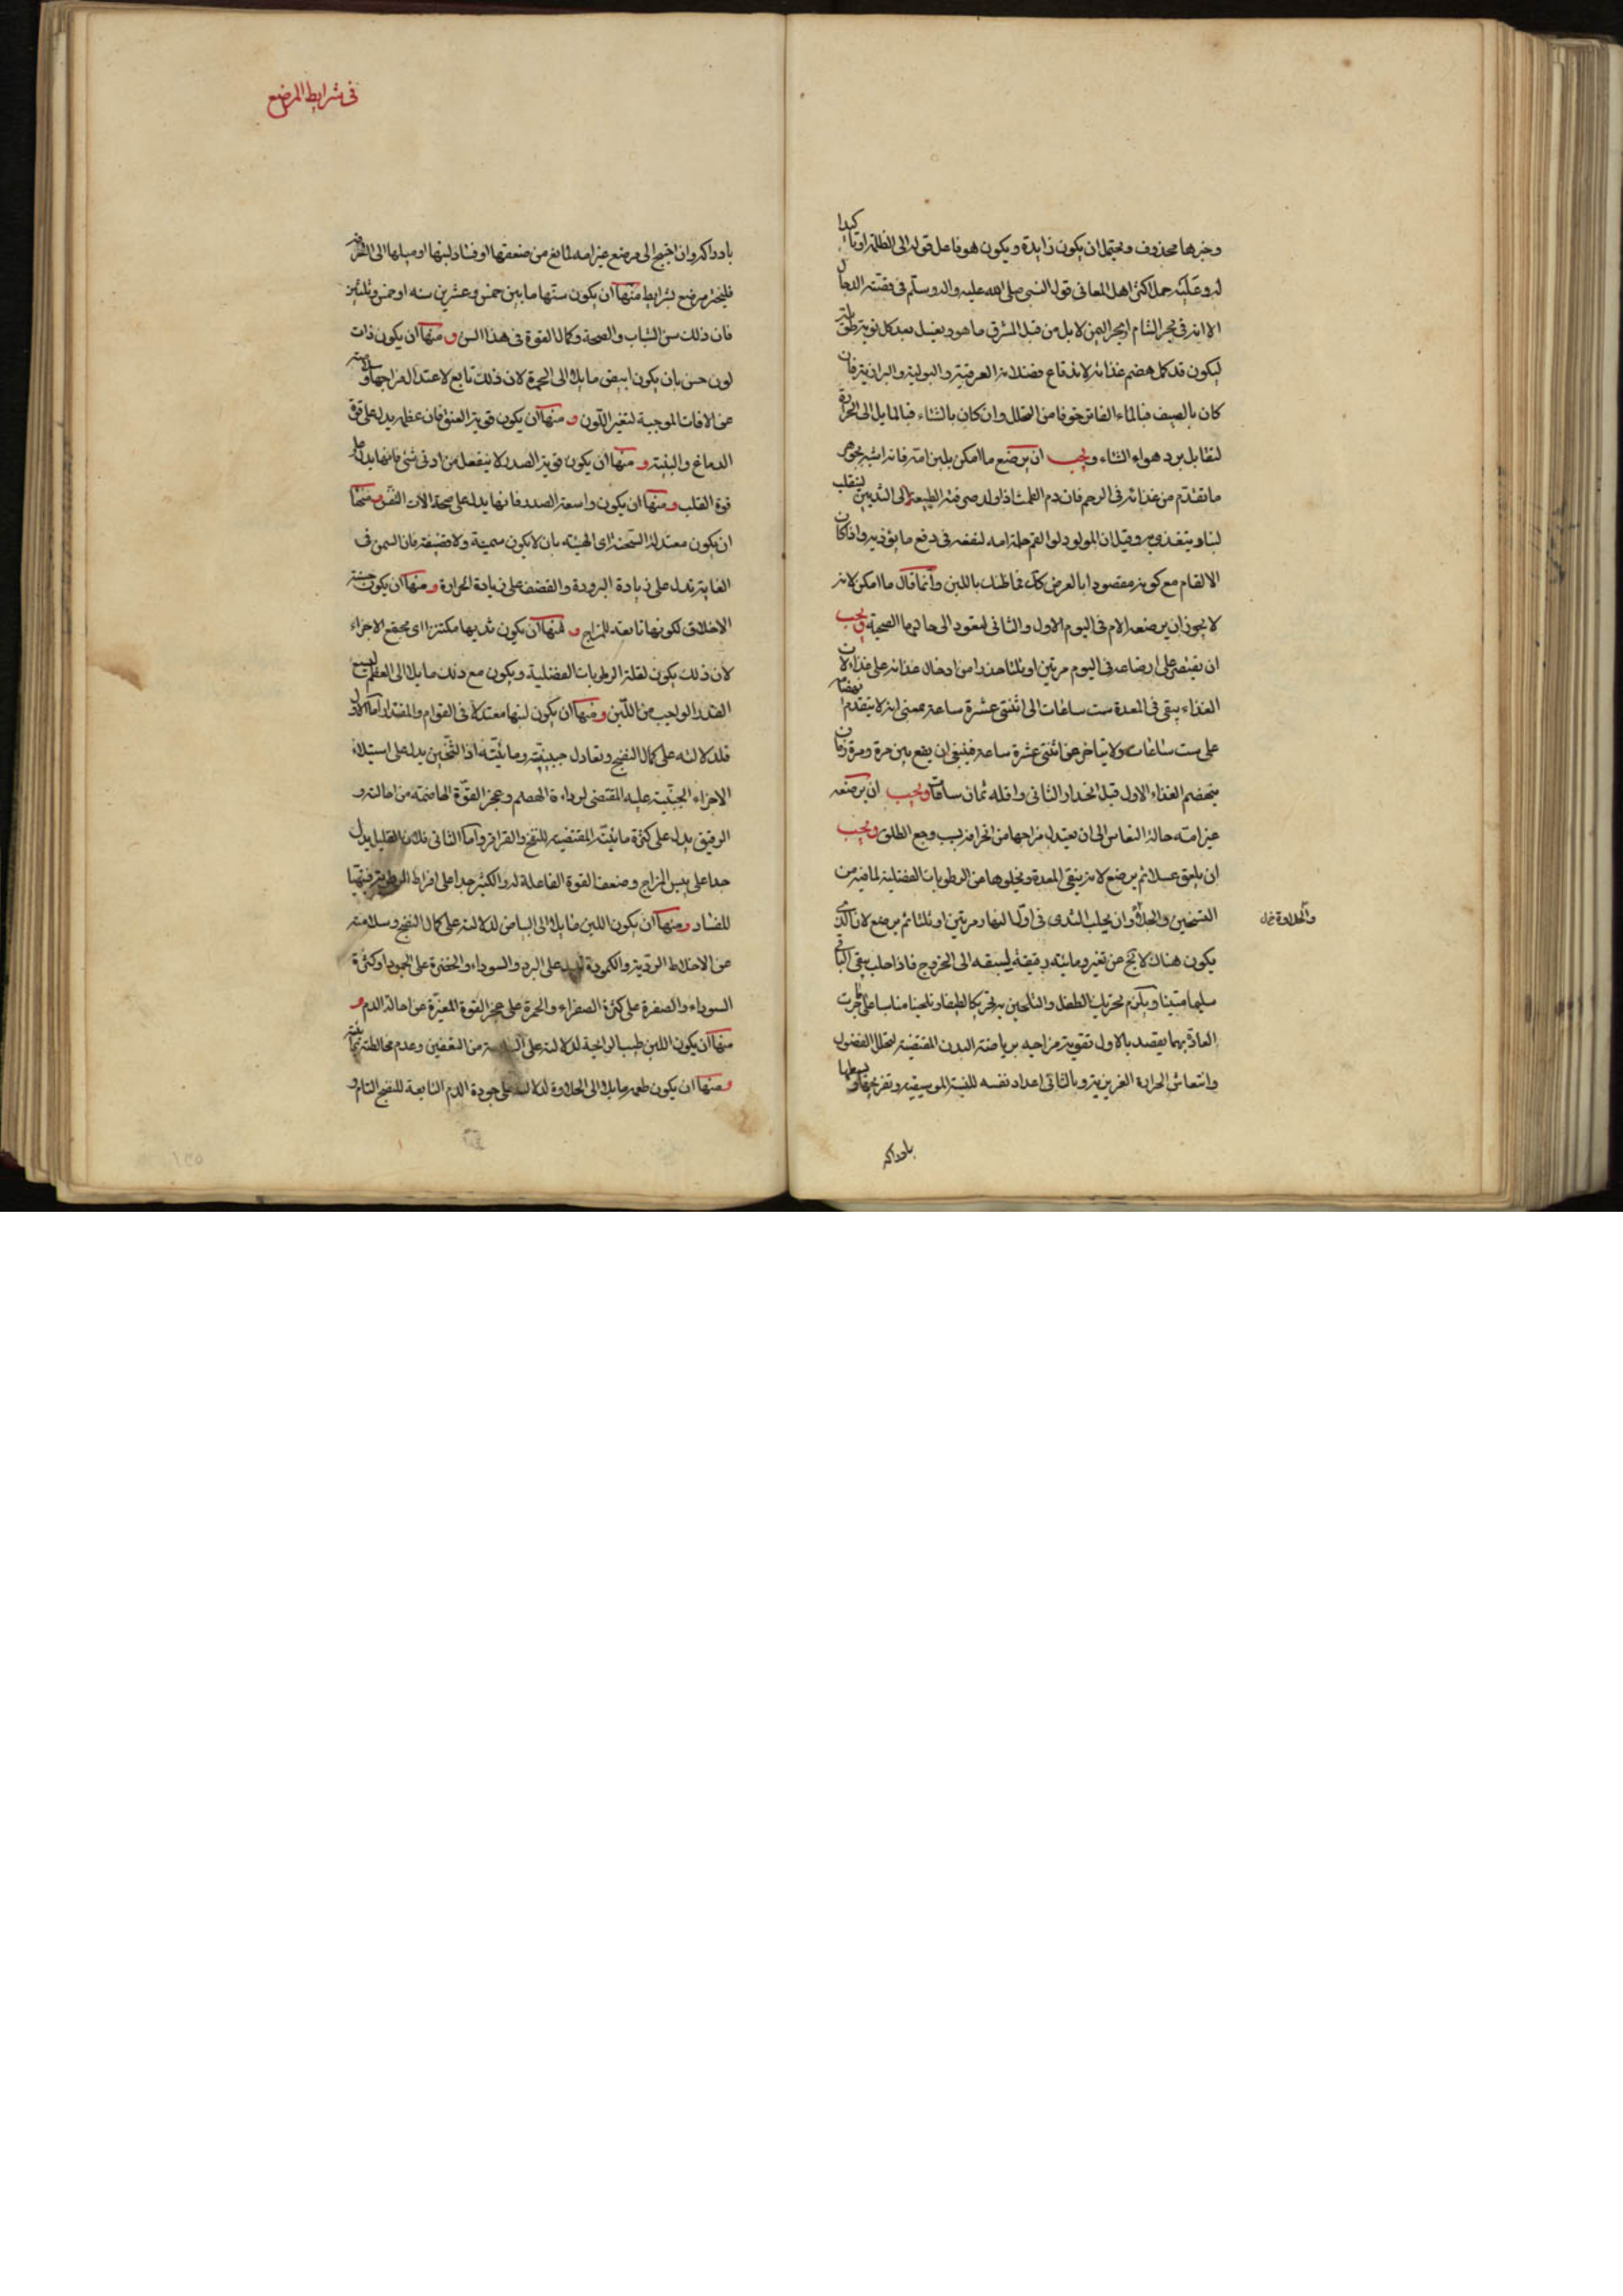 وخبرها محذوف ويحتمل ان يكون زايدة ويكون هو فاعل قوله الى الظلمة او تأكيدا
له وعليه حمل اكثر اهل المعانى قول النبى صلى الله عليه واله وسلم فى قصة الدجال
الا انه فى بحر الشام او بحر اليمن لا بل من قبل المشرق ما هو ويغسل بعد كل نومة طويلة
ليكون قد كمل هضم غذائه لاندفاع فضلاته العرقية والبولية والبرازية فان
كان بالصيف فبالماء الفاتر خوفا من التحلل وان كان بالشتاء فبالمايل الى الحرارة
لتقابل برد هواء الشتاء ويجب ان يرضع ما امكن بلبن امه فانه اشبه بجوهر
ما تقدم من غذائه فى الرحم فان دم الطمث اذا ولد صرفته الطبيعة الى الثديين لينقلب
لبنا ويتغذى به وقيل ان المولود لو القم حلمة امه لنفعه فى دفع ما يؤذيه واذا كان
الالقام مع كونه مقصودا بالعرض كذلك فما ظنك باللبن وانما قال ما امكن لانه
لا يجوز ان يرضعه الام فى اليوم الاول والثانى لتعود الى حالها الصحية ويجب
ان يقتصر على ارضاعه فى اليوم مرتين او ثلثا حذرا من ادخال غذائه على غذاء لان
الغذاء يبقى فى المعدة ست ساعات الى اثنتى عشرة ساعة بمعنى انه لا يتقدم انهضام
على ست ساعات ولا يتاخر عن اثنتى عشرة ساعة فينبغى ان يقع بين مرة ومرة زمان
ينهضم الغذاء الاول قبل انحدار الثانى واقله ثمان ساعات ويجب ان يرضعه
غير امته حالة النفاس الى ان يعتدل مزاجها من انحرافه بسبب وجع الطلق ويجب
ان يلعق عسلا ثم يرضع لانه ينقى المعدة ويجلوها من الرطوبات الفضلية لما فيه من
التسخين والجلاء وان يحلب الثدى فى اول النهار مرتين او ثلثا ثم يرضع لان الذى
والحلاوة خل
يكون هناك لا يخ عن تغير ومائية رقيقة ليسبقه الى الخروج فاذا حلب بقى الباقى
سليما متينا ويلزم تحريك الطفل والتلحين به تحريكا لطيفا وتلحينا مناسبا على ما جرت
العادة بهما يقصد بالاول تقوية مزاجه برياضة البدن المقتضية لتحلل الفضول
وانتعاش الحرارة الغريزية وبالثانى اعداد نفسه للنسبة الموسيقية وتفريحها وبسطها
بادراكه
فى شرايط المرضع
بادراكه وان احتيج الى مرضع غير امه لمانع من ضعفها او فساد لبنها او ميلها الى
فليختر مرضع بشرايط منها ان يكون سنها ما بين خمس وعشرين سنه او خمس وثلثين
فان ذلك سن الشباب والصحة وكمال القوة فى هذا السن ومنها ان يكون ذات
لون حسن بان يكون ابيض مايلا الى الحمرة لان ذلك تابع لاعتدال مزاجها وسلامته
عن الافات الموجبة لتغير اللون ومنها ان يكون قوية العنق فان عظمه يدل على قوة
الدماغ والبنية ومنها ان يكون قوية الصدر لا ينفعل من ادنى شئ فانها يدل على
قوة القلب ومنها ان يكون واسعة الصدر فانها يدل على صحة الات التنفس ومنها
ان يكون معتدلة السحنة اى الهيئة بان لا يكون سمينة ولا قضيفة فان السمن فى
الغاية تدل على زيادة البرودة والقضف على زيادة الحرارة ومنها ان يكون حسنة
الاخلاق لكونها تابعة للمزاج ومنها ان يكون ثديها مكتنزا اى مجتمع الاجزاء
لان ذلك يكون لقلة الرطوبات الفضلية ويكون مع ذلك مايلا الى العظم ليسع
القدر الواجب من اللبن ومنها ان يكون لبنها معتدلا فى القوام والمقدار اما الاول
فلدلالته على كمال النضج وتعادل جبنيته ومائيته اذ الثخين يدل على استيلاء
الاجزاء الجبنية عليه المقتضى لرداءة الهضم وعجز القوة الهاضمة من احالته و
الرقيق يدل على كثرة مائيته المقتضية للنفخ والقراقر واما الثانى فلان القليل يدل
جدا على يبس المزاج وضعف القوة الفاعلة له والكثير جدا على افراط الرطوبة
للفساد ومنها ان يكون اللبن مايلا الى البياض لدلالته على كمال النضج وسلامته
عن الاخلاط الردية والكمودة تدل على البرد والسوداء والخضرة على الجمود او كثرة
السوداء والصفرة على كثرة الصفراء والحمرة على عجز القوة المغيرة عن احالة الدم و
منها ان يكون اللبن طيب الرايحة لدلالته على السلامة من التعفين وعدم مخالطة
ومنها ان يكون طعمه مايلا الى الحلاوة لدلالته على جودة الدم التابعة للنضج التام و